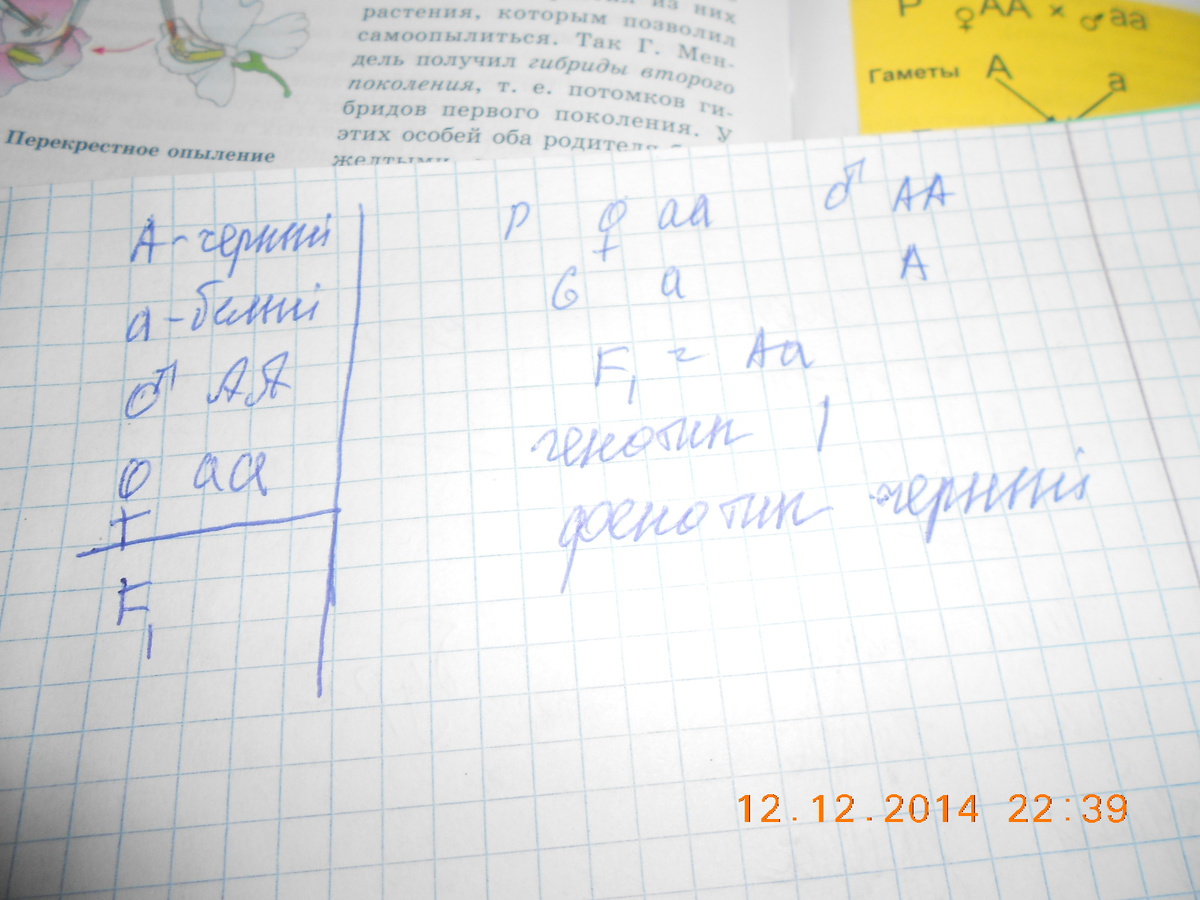 из них
растения, которым позволил
самоопылиться. Так Г. Мен-
дель получил гибриды второго
поколения, т. е. потомков ги-
бридов первого поколения. У
этих особей оба родителя
желтыми
Перекрестное опыление
P ♀ AA × ♂ aa
Гаметы A a
A - черный
a - белый
♂ AA
♀ aa
F₁
P ♀ aa ♂ AA
G a A
F₁ = Aa
генотип 1
фенотип - черный
12.12.2014 22:39